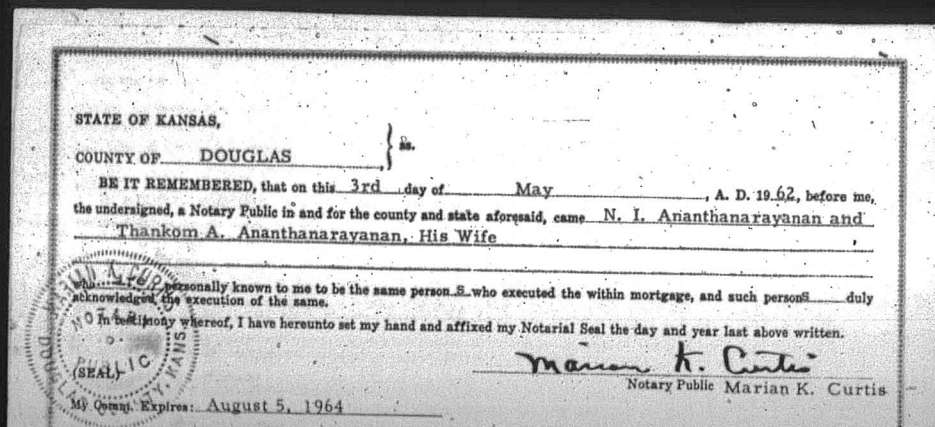 STATE OF KANSAS,
COUNTY OF DOUGLAS, } ss.
BE IT REMEMBERED, that on this 3rd day of May, A. D. 1962, before me,
the undersigned, a Notary Public in and for the county and state aforesaid, came N. I. Ananthanarayanan and
Thankom A. Ananthanarayanan, His Wife,
who personally known to me to be the same person S who executed the within mortgage, and such personS duly
acknowledged the execution of the same.
In testimony whereof, I have hereunto set my hand and affixed my Notarial Seal the day and year last above written.
(SEAL)
Marian K. Curtis
Notary Public Marian K. Curtis
My Comm. Expires: August 5, 1964